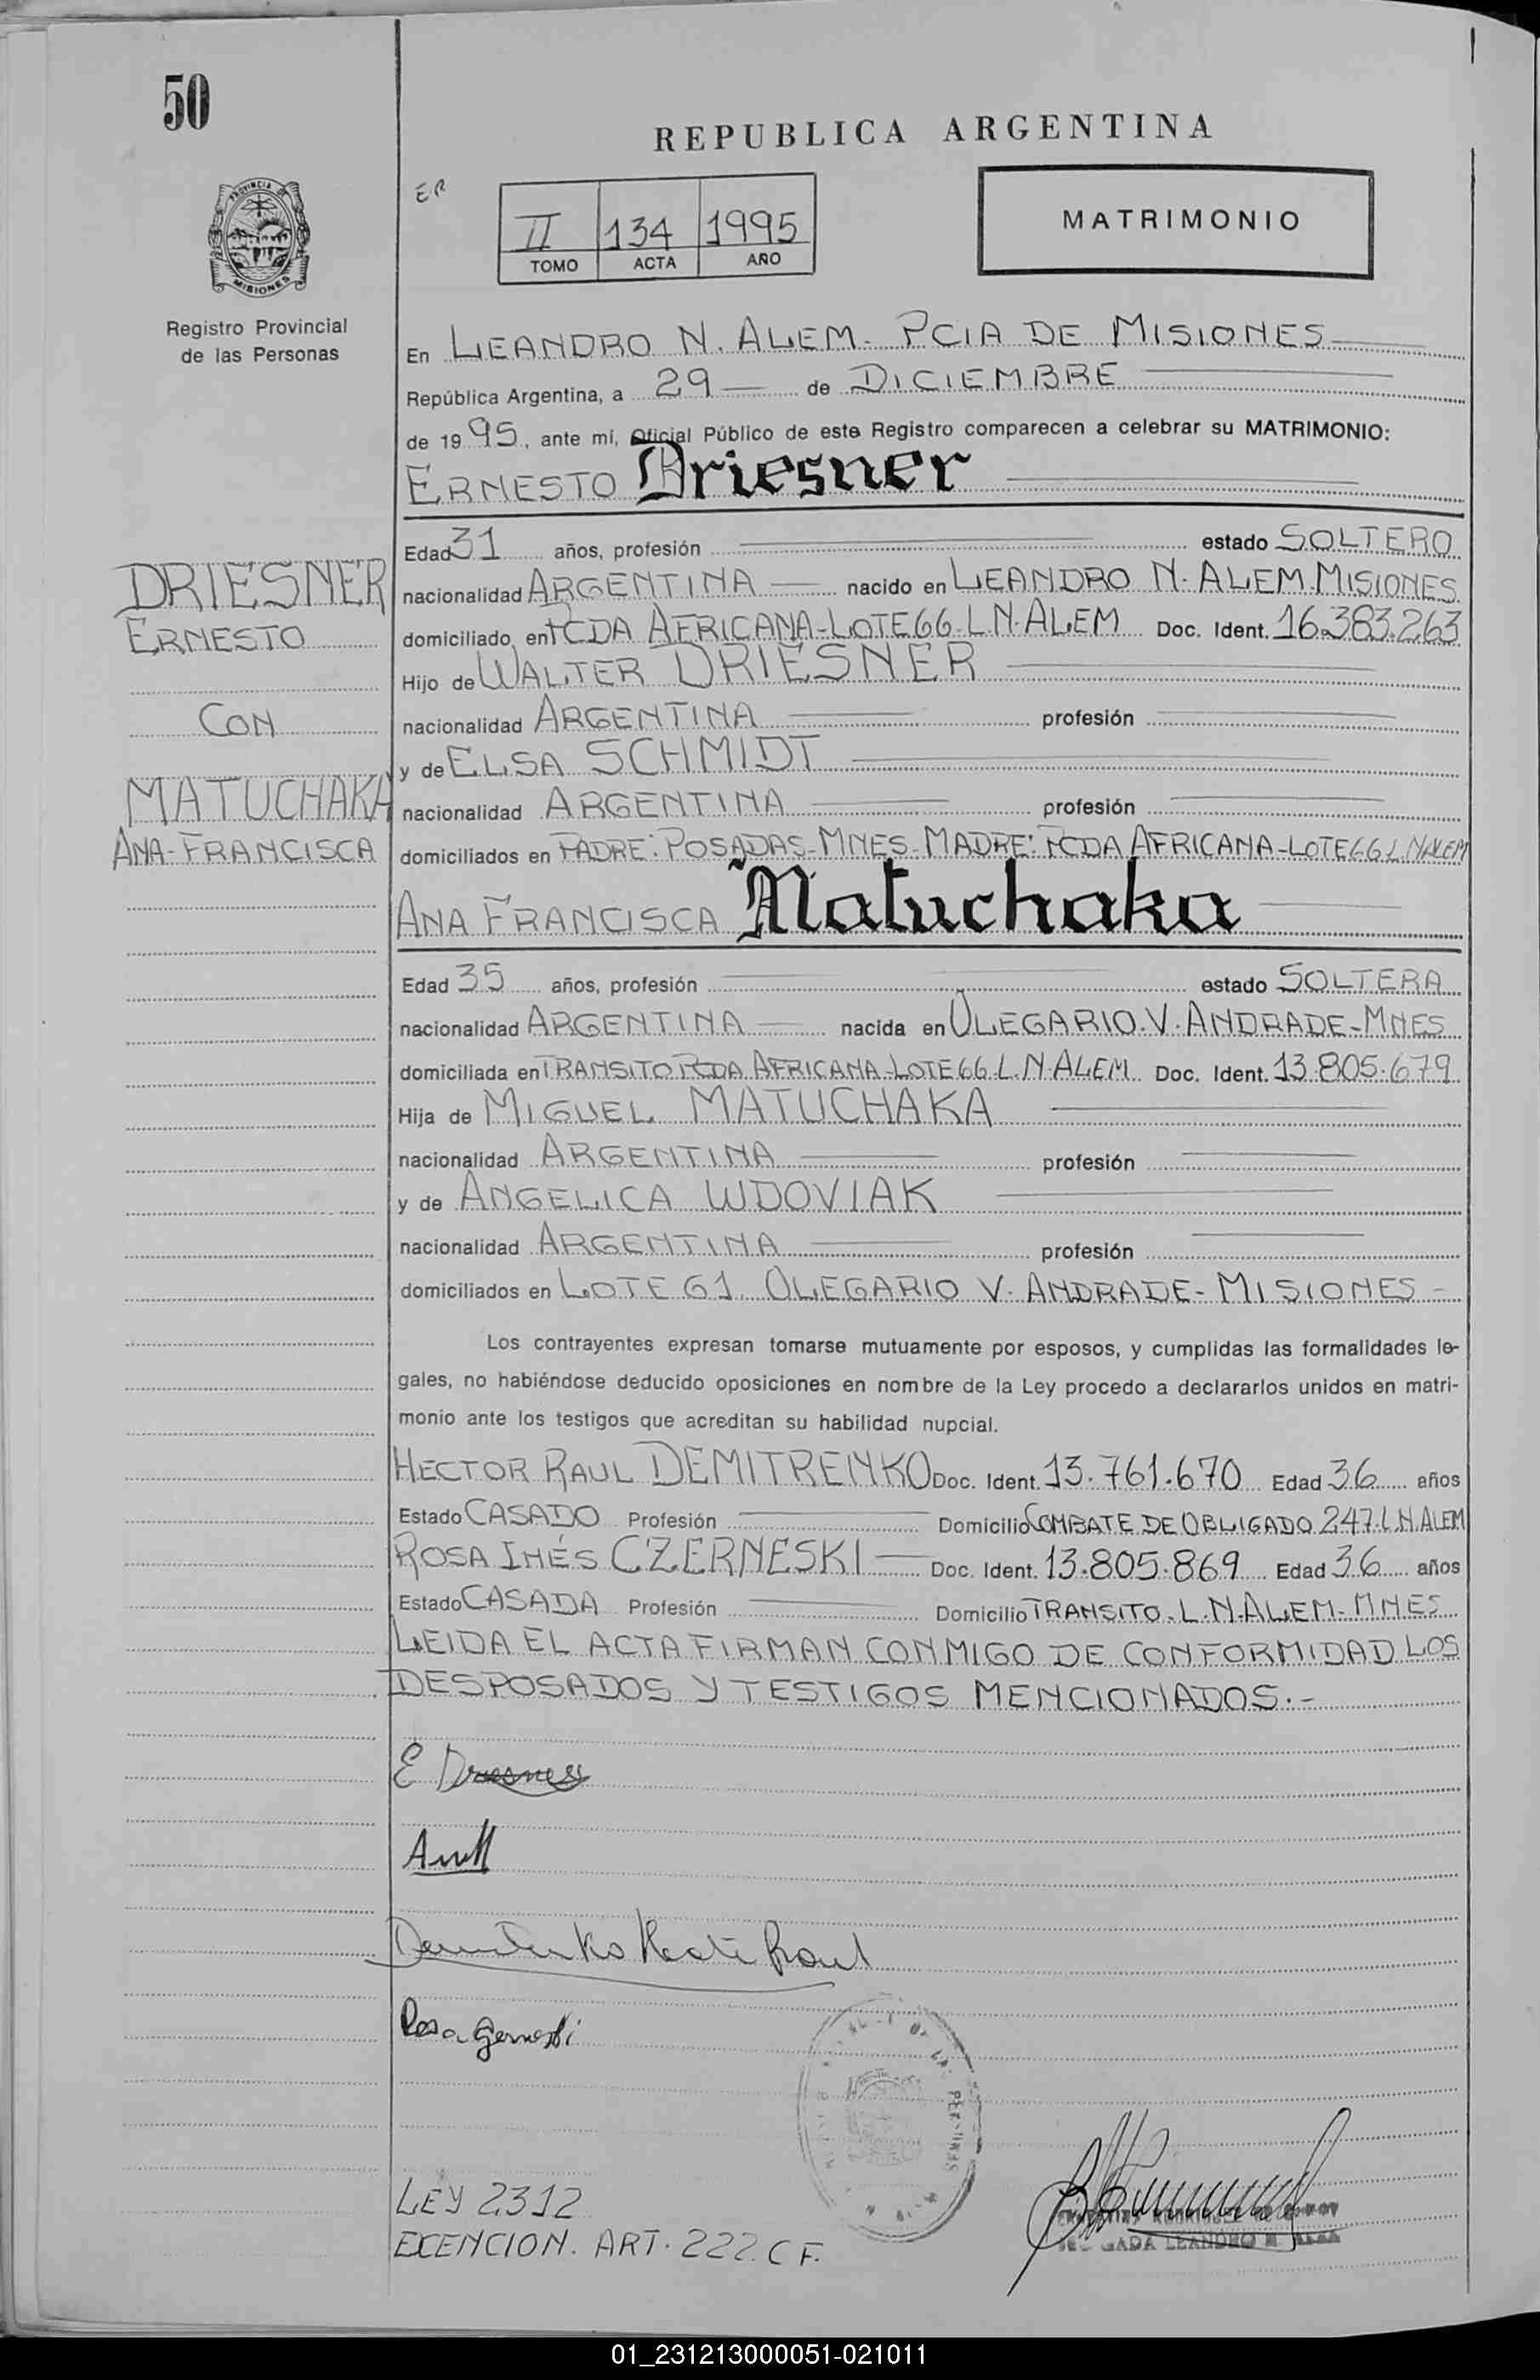 50
REPUBLICA ARGENTINA
PROVINCIA DE
MISIONES
Registro Provincial
de las Personas
E.R
II 134 1995
TOMO ACTA AÑO
MATRIMONIO
En LEANDRO N. ALEM - PCIA DE MISIONES
República Argentina, a 29 de DICIEMBRE
de 19 95, ante mí, Oficial Público de este Registro comparecen a celebrar su MATRIMONIO:
ERNESTO Driesner
Edad 31 años, profesión estado SOLTERO
DRIESNER
ERNESTO
CON
MATUCHAKA
ANA-FRANCISCA
nacionalidad ARGENTINA nacido en LEANDRO N. ALEM. MISIONES
domiciliado en PCDA AFRICANA-LOTE 66-L.N.ALEM Doc. Ident. 16.383.263
Hijo de WALTER DRIESNER
nacionalidad ARGENTINA profesión
y de ELSA SCHMIDT
nacionalidad ARGENTINA profesión
domiciliados en PADRE: POSADAS-MNES-MADRE: PCDA AFRICANA-LOTE 66 L.N.ALEM
ANA FRANCISCA Matuchaka
Edad 35 años, profesión estado SOLTERA
nacionalidad ARGENTINA nacida en OLEGARIO.V.ANDRADE-MNES
domiciliada en TRANSITO PCDA AFRICANA-LOTE 66 L.N.ALEM Doc. Ident. 13.805.679
Hija de MIGUEL MATUCHAKA
nacionalidad ARGENTINA profesión
y de ANGELICA WDOVIAK
nacionalidad ARGENTINA profesión
domiciliados en LOTE 61 OLEGARIO V. ANDRADE - MISIONES -
Los contrayentes expresan tomarse mutuamente por esposos, y cumplidas las formalidades le-
gales, no habiéndose deducido oposiciones en nombre de la Ley procedo a declararlos unidos en matri-
monio ante los testigos que acreditan su habilidad nupcial.
HECTOR RAUL DEMITRENKO Doc. Ident. 13.761.670 Edad 36 años
Estado CASADO Profesión Domicilio COMBATE DE OBLIGADO 247.L.N.ALEM
ROSA INÉS CZERNESKI Doc. Ident. 13.805.869 Edad 36 años
Estado CASADA Profesión Domicilio TRANSITO. L.N.ALEM-MNES
LEIDA EL ACTA FIRMAN CONMIGO DE CONFORMIDAD LOS
DESPOSADOS Y TESTIGOS MENCIONADOS.-
E Driesner
Demitrenko Hector Raul
Rosa
LEY 2312
EXENCION. ART. 222. C F.
LEANDRO N ALEM
01_231213000051-021011